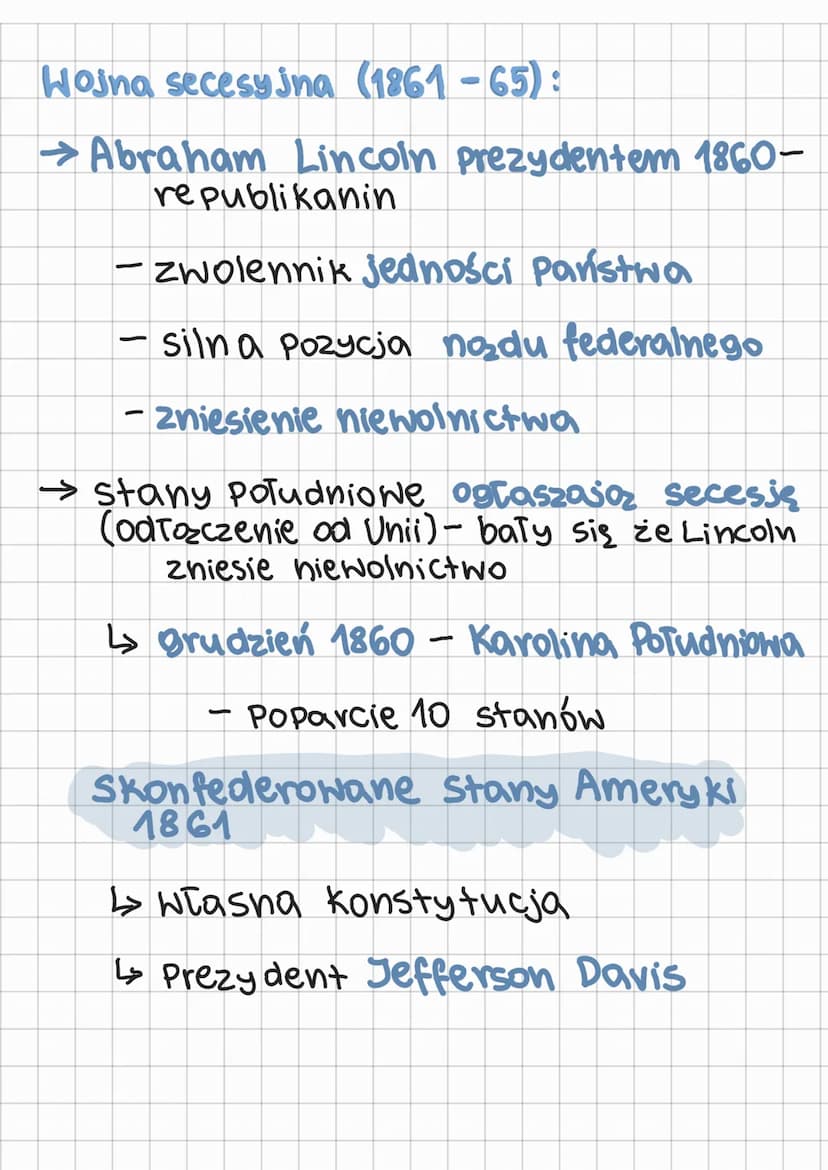 Wojna secesyjna (1861 - 65):
→ Abraham Lincoln prezydentem 1860-
republikanin
- zwolennik jedności państwa
- silna pozycja rządu federalnego
- zniesienie niewolnictwa
→ stany południowe ogłaszają secesję
(odłączenie od Unii) - bały się że Lincoln
zniesie niewolnictwo
↳ grudzień 1860 - Karolina Południowa
- poparcie 10 stanów
Skonfederowane Stany Ameryki
1861
↳ własna konstytucja
↳ prezydent Jefferson Davis